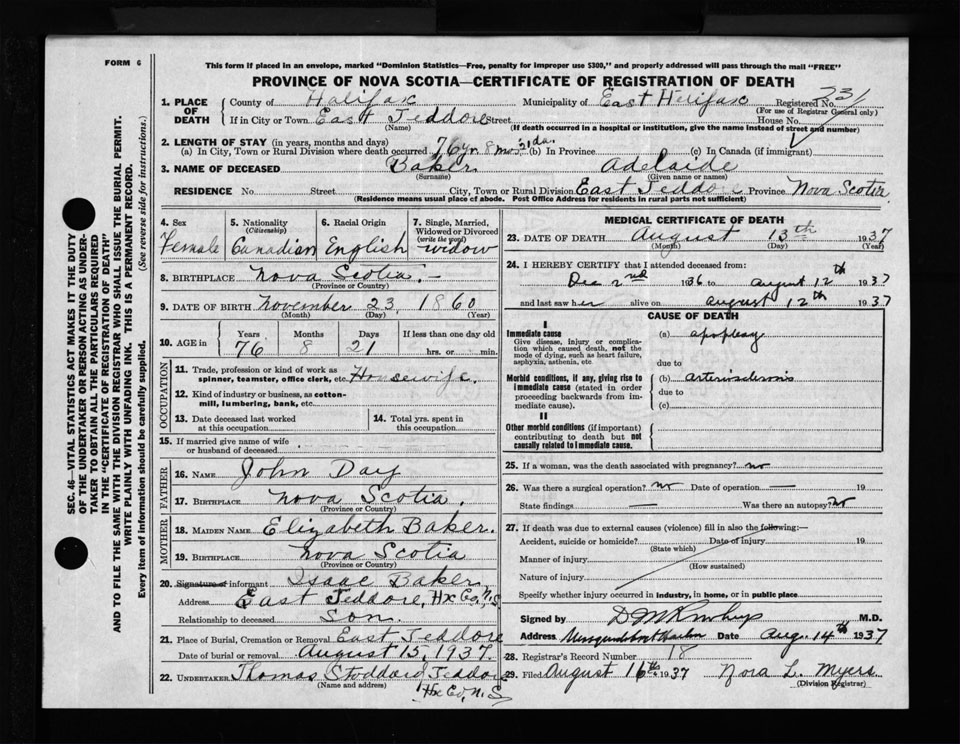 FORM 6
This form if placed in an envelope, marked "Dominion Statistics—Free, penalty for improper use $300," and properly addressed will pass through the mail "FREE"
PROVINCE OF NOVA SCOTIA—CERTIFICATE OF REGISTRATION OF DEATH
1. PLACE OF DEATH
County of Halifax Municipality of East Halifax Registered No. 231
(For use of Registrar General only)
If in City or Town East Jeddore Street House No.
(Name) (If death occurred in a hospital or institution, give the name instead of street and number)
2. LENGTH OF STAY (in years, months and days)
(a) In City, Town or Rural Division where death occurred 76 yr 8 mos 21 da. (b) In Province (c) In Canada (if immigrant)
3. NAME OF DECEASED Baker Adelaide
(Surname) (Given name or names)
RESIDENCE No. Street City, Town or Rural Division East Jeddore Province Nova Scotia
(Residence means usual place of abode. Post Office Address for residents in rural parts not sufficient)
4. Sex Female
5. Nationality (Citizenship) Canadian
6. Racial Origin English
7. Single, Married, Widowed or Divorced (write the word) widow
8. BIRTHPLACE Nova Scotia.—
(Province or Country)
9. DATE OF BIRTH November 23, 1860
(Month) (Day) (Year)
10. AGE in Years Months Days If less than one day old
76 8 21 hrs. or min.
OCCUPATION
11. Trade, profession or kind of work as spinner, teamster, office clerk, etc. Housewife.
12. Kind of industry or business, as cotton-mill, lumbering, bank, etc.
13. Date deceased last worked at this occupation
14. Total yrs. spent in this occupation
15. If married give name of wife or husband of deceased
FATHER
16. NAME John Day
17. BIRTHPLACE Nova Scotia.
(Province or Country)
MOTHER
18. MAIDEN NAME Elizabeth Baker.
19. BIRTHPLACE Nova Scotia
(Province or Country)
20. Signature of informant Isaac Baker
Address East Jeddore, Hx Co, N.S
Relationship to deceased Son.
21. Place of Burial, Cremation or Removal East Jeddore
Date of burial or removal August 15, 1937.
22. UNDERTAKER Thomas Stoddard Jeddore
(Name and address) Hx Co, N.S
MEDICAL CERTIFICATE OF DEATH
23. DATE OF DEATH August 13th 1937
(Month) (Day) (Year)
24. I HEREBY CERTIFY that I attended deceased from:
Dec 2nd 1936 to August 12th 1937
and last saw her alive on August 12th 1937
CAUSE OF DEATH
I
Immediate cause (a) apoplexy
Give disease, injury or complication which caused death, not the mode of dying, such as heart failure, asphyxia, asthenia, etc
due to
Morbid conditions, if any, giving rise to immediate cause (stated in order proceeding backwards from immediate cause). (b) arteriosclerosis
due to
(c)
II
Other morbid conditions (if important) contributing to death but not causally related to immediate cause.
25. If a woman, was the death associated with pregnancy? no
26. Was there a surgical operation? no Date of operation — 19
State findings — Was there an autopsy? no
27. If death was due to external causes (violence) fill in also the following:—
Accident, suicide or homicide? Date of injury 19
(State which)
Manner of injury
(How sustained)
Nature of injury
Specify whether injury occurred in industry, in home, or in public place
Signed by M.D.
Address Date Aug. 14th 1937
28. Registrar's Record Number 18
29. Filed August 16th 1937 Nora L. Myers
(Division Registrar)
SEC. 46—VITAL STATISTICS ACT MAKES IT THE DUTY
OF THE UNDERTAKER OR PERSON ACTING AS UNDER-
TAKER TO OBTAIN ALL THE PARTICULARS REQUIRED
IN THE "CERTIFICATE OF REGISTRATION OF DEATH"
AND TO FILE THE SAME WITH THE DIVISION REGISTRAR WHO SHALL ISSUE THE BURIAL PERMIT.
WRITE PLAINLY WITH UNFADING INK. THIS IS A PERMANENT RECORD.
Every item of information should be carefully supplied. (See reverse side for instructions.)